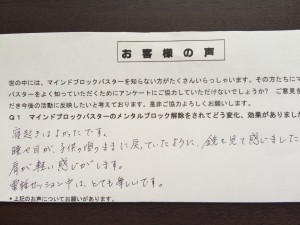 お客様の声
世の中には、マインドブロックバスターを知らない方がたくさんいらっしゃいます。その方たちにマ
バスターをよく知っていただくためにアンケートにご協力していただけないでしょうか? ご意見を
だき今後の活動に反映したいと考えております。是非ご協力よろしくお願いします。
Q1 マインドブロックバスターのメンタルブロック解除をされてどう変化、効果がありました
寝起きはよかったです。
瞳や目が、子供の頃のままに戻っていたように、鏡を見て感じました
肩が軽い感じがします。
電話セッション中は、とても楽しいです。
*上記のお声についてお願いがあります。